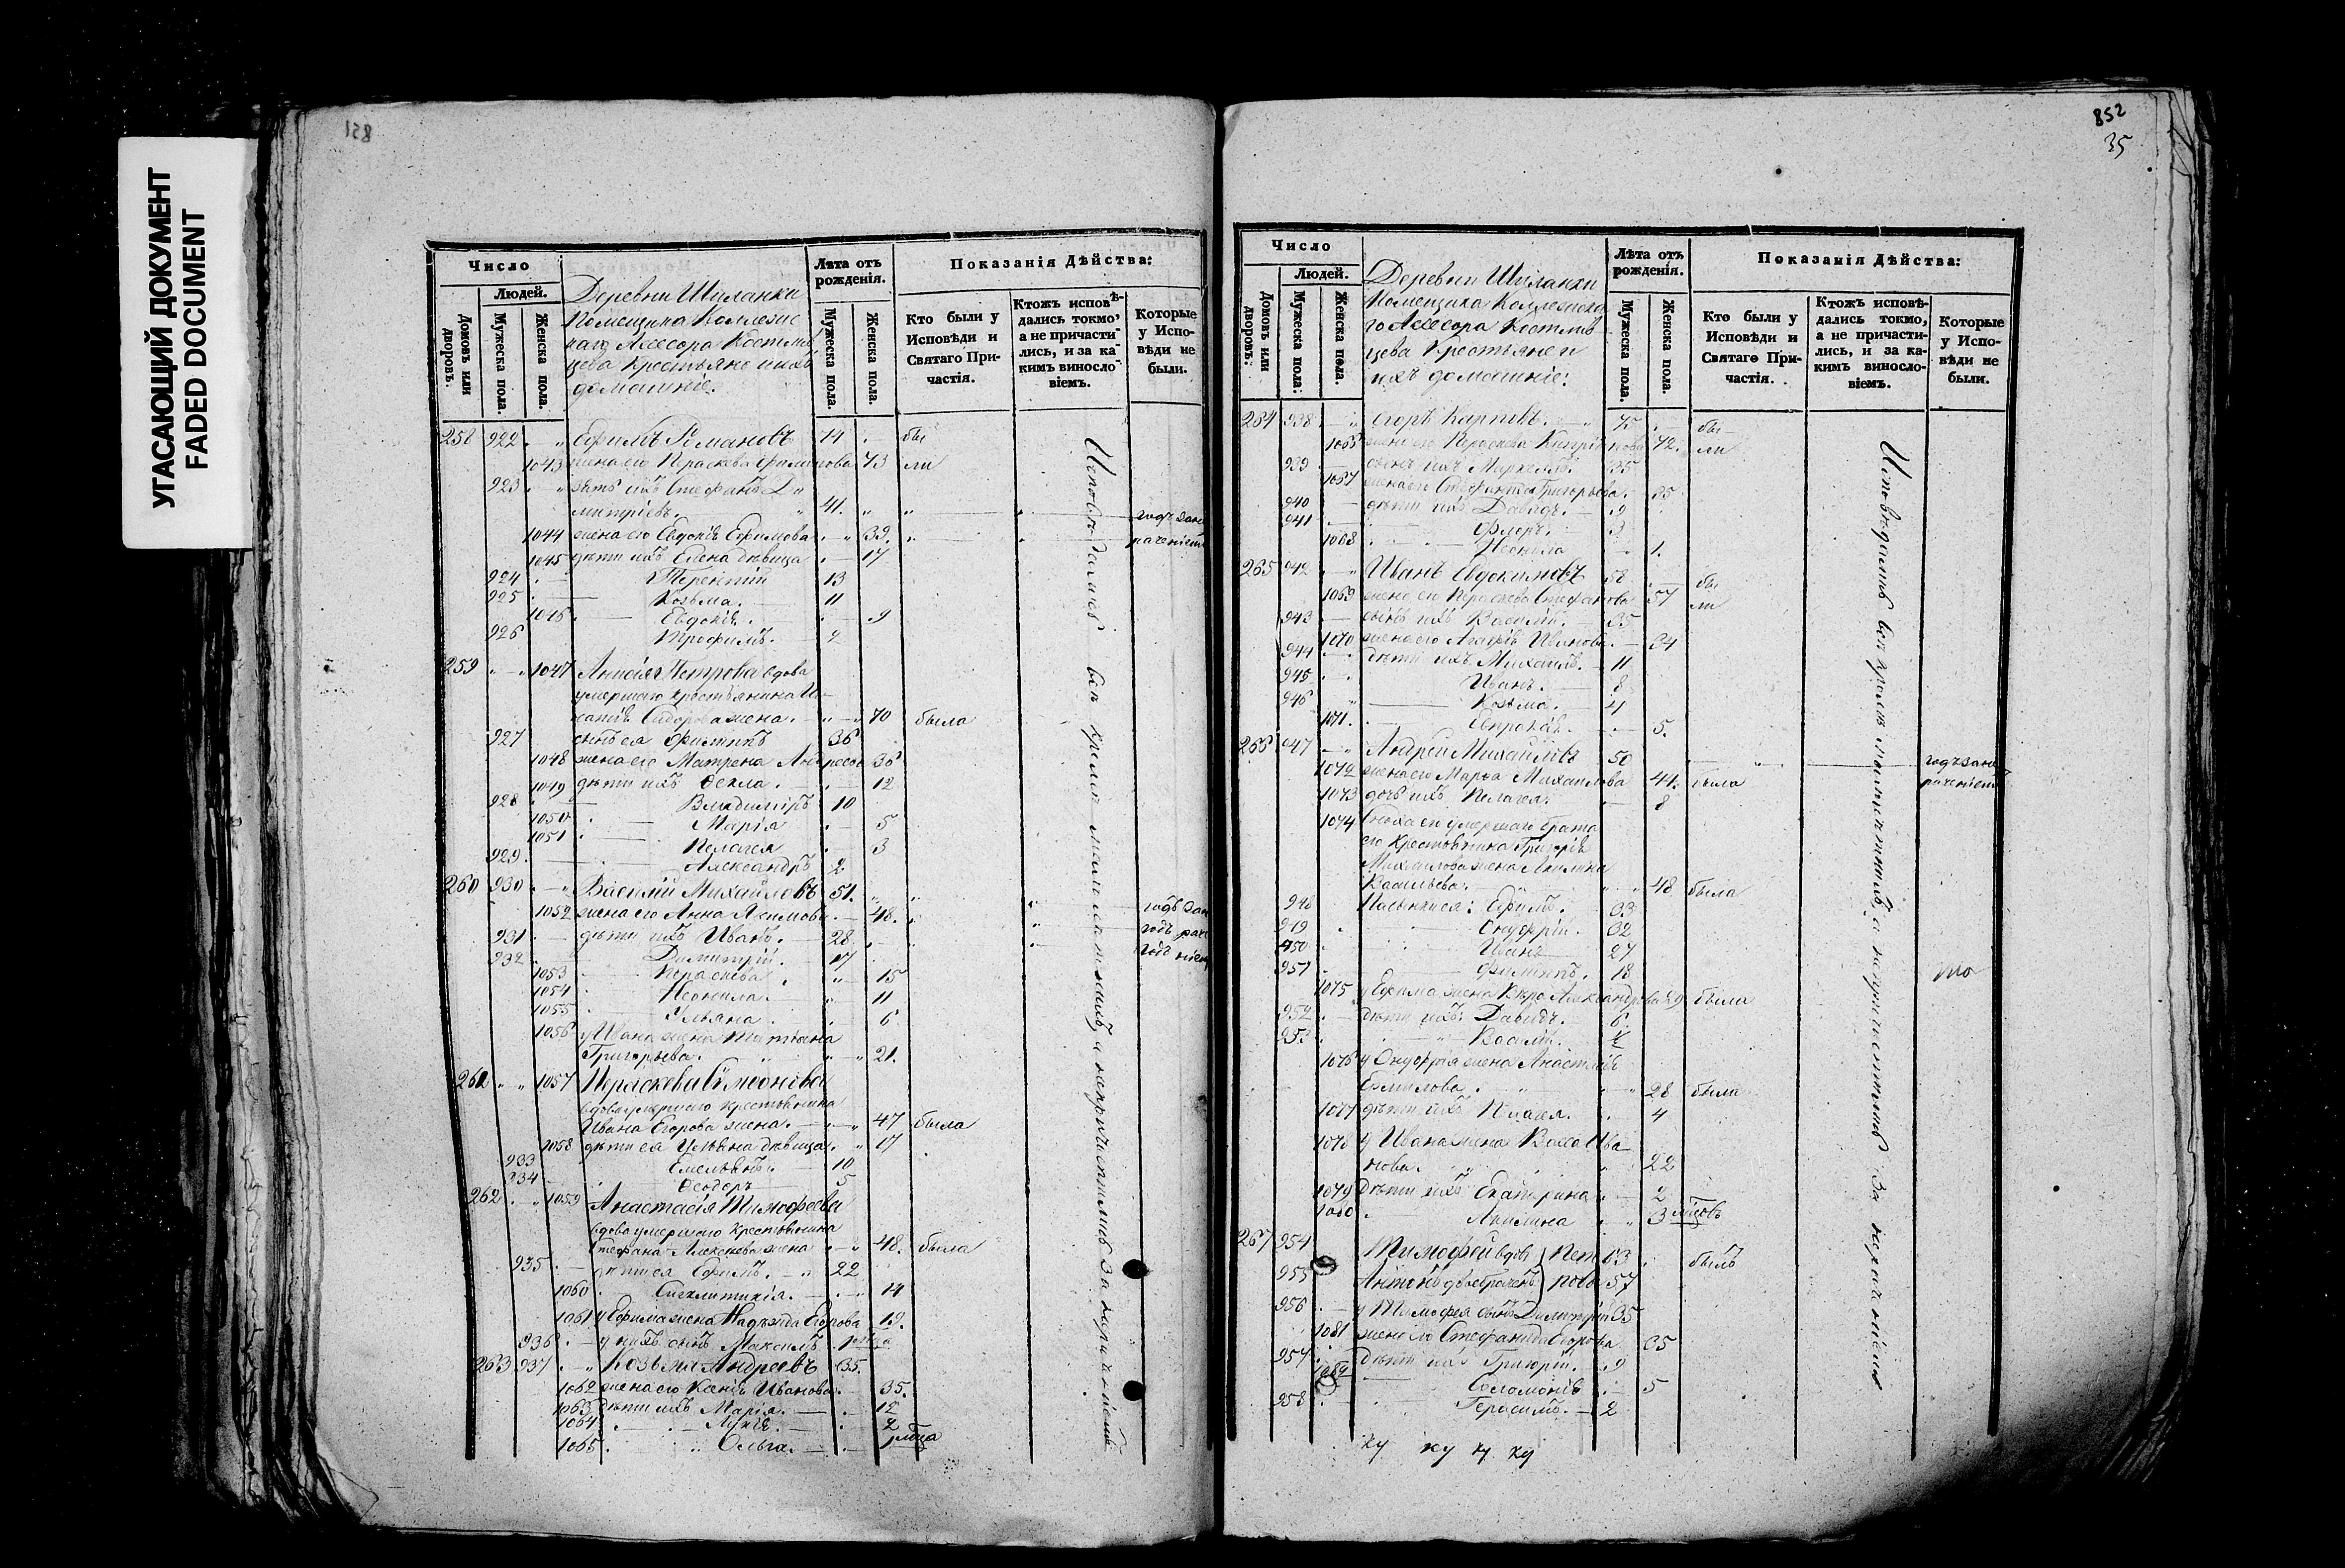 УГАСАЮЩИЙ ДОКУМЕНТ
FADED DOCUMENT
851
Число
Людей.
Домовъ или дворовъ.
Мужеска пола.
Женска пола.
Деревни Шиланки
Помещика Коллежс
каго Асессора Костлив
цева Крестьяне и ихъ
домашніе:
Лѣта отъ рожденія.
Мужеска пола.
Женска пола.
Показанія Дѣйства:
Кто были у Исповѣди и Святаго Причастія.
Ктожъ исповѣдались токмо, а не причастились, и за какимъ винословіемъ.
Которые у Исповѣди не были.
258 922 Ефимъ Романовъ 74 бы
1043 жена его Параскева Филипова 73 ли
923 зять ихъ Стефанъ Ди
митріевъ. 41.
1044 жена его Евдокія Ефимова 39.
1045 дѣти ихъ Елена дѣвица 17
924 Терентій 13
925 Козьма. 11
1046 Евдокія. 9
926 Трофимъ. 2
259 1047 Анисія Петрова вдова
умершаго крестьянина Иг
натія Сидорова жена. 70 была
927 сынъ ея Филиппъ 36
1048 жена его Матрена Андреева 36
1049 дѣти ихъ Ѳекла. 12
928 Владимиръ 10
1050 Марія 5
1051 Пелагея 3
929 Александръ 2
260 930 Василій Михайловъ 51.
1052 жена его Анна Якимова 48.
931 дѣти ихъ Иванъ. 28
932 Димитрій. 17
1053 Параскева 15
1054 Неонила. 11
1055 Ульяна. 6
1056 у Ивана жена Татьяна
Григорьева. 21.
261 1057 Параскева Симеонова
вдова умершаго крестьянина
Ивана Егорова жена. 47 была
1058 дѣти ея Ульяна дѣвица 17
933 Емельянъ. 10
934 Ѳеодоръ 5
262 1059 Анастасія Тимофеева
вдова умершаго крестьянина
Стефана Алексеева жена 48. была
935 дѣти ея Ефимъ. 22
1060 Синклитикія. 14
1061 у Ефима жена Надежда Егорова 19.
936 у нихъ сынъ Максимъ 1
263 937 Козьма Андреевъ 35.
1062 жена его Ксенія Иванова. 35.
1063 дѣти ихъ Марія. 12
1064 Лукія. 2
1065 Ольга. 1
Исповѣдались всѣ кромѣ малолѣтнихъ, а не причастились за нераченіемъ
852
35
Число
Людей.
Домовъ или дворовъ:
Мужеска пола:
Женска пола.
Деревни Шиланки
Помещика Коллежска
го Асесора Костлив
цева Крестьяне и
ихъ домашніе:
Лѣта отъ рожденія.
Мужеска пола.
Женска пола.
Показанія Дѣйства:
Кто были у Исповѣди и Святаго Причастія.
Ктожъ исповѣдались токмо, а не причастились, и за какимъ винословіемъ.
Которые у Исповѣди не были.
264 938 Егоръ Карповъ. 75 бы
1066 жена его Параскева 72. ли
939 сынъ ихъ Маркеллъ. 35
1067 жена его Григорьева. 35
940 дѣти ихъ Давидъ. 9
941 Флоръ. 3
1068 Неонила 1.
265 942 Иванъ Евдокимовъ 58 бы
1069 жена его Параскева Стефанова 57 ли
943 сынъ ихъ Василій. 35
1070 жена его Агафія Иванова. 34
944 дѣти ихъ Михаилъ. 11
945 Иванъ. 8
946 Козьма. 4
1071. 5.
266 947 Андрей Михайловъ 50
1072 жена его Марья Михаилова 44. была
1073 дочь ихъ Пелагея. 8
1074 сноха его умершаго брата
его Крестьянина Григорія
Михаилова жена Акилина
Васильева. 48 была
948 Пасынки ея: Ефимъ. 33
949 Онуфрій. 32
950 Иванъ 27
951 Филиппъ. 18
1075 у Ефима жена Вѣра Александрова 29 была
952 дѣти ихъ: Давидъ. 6
953 Василій.
1076 у Онуфрія жена Анастасія
28 была
1077 дѣти ихъ Пелагея. 4
1078 у Ивана жена Васса Ива
нова. 22
1079 дѣти ихъ Екатерина 2
1080 Акилина 3
267 954 Тимофей вдовъ Пет 63 былъ
955 Антонъ ровы 57
956 у Тимофея сынъ Димитрій 35
1081 жена его Стефанида Егорова 35
957 дѣти ихъ Григорій. 9
1082 Соломонія 5
958 Герасимъ. 2
Исповѣдались всѣ кромѣ малолѣтнихъ, а не причастились за нераченіемъ